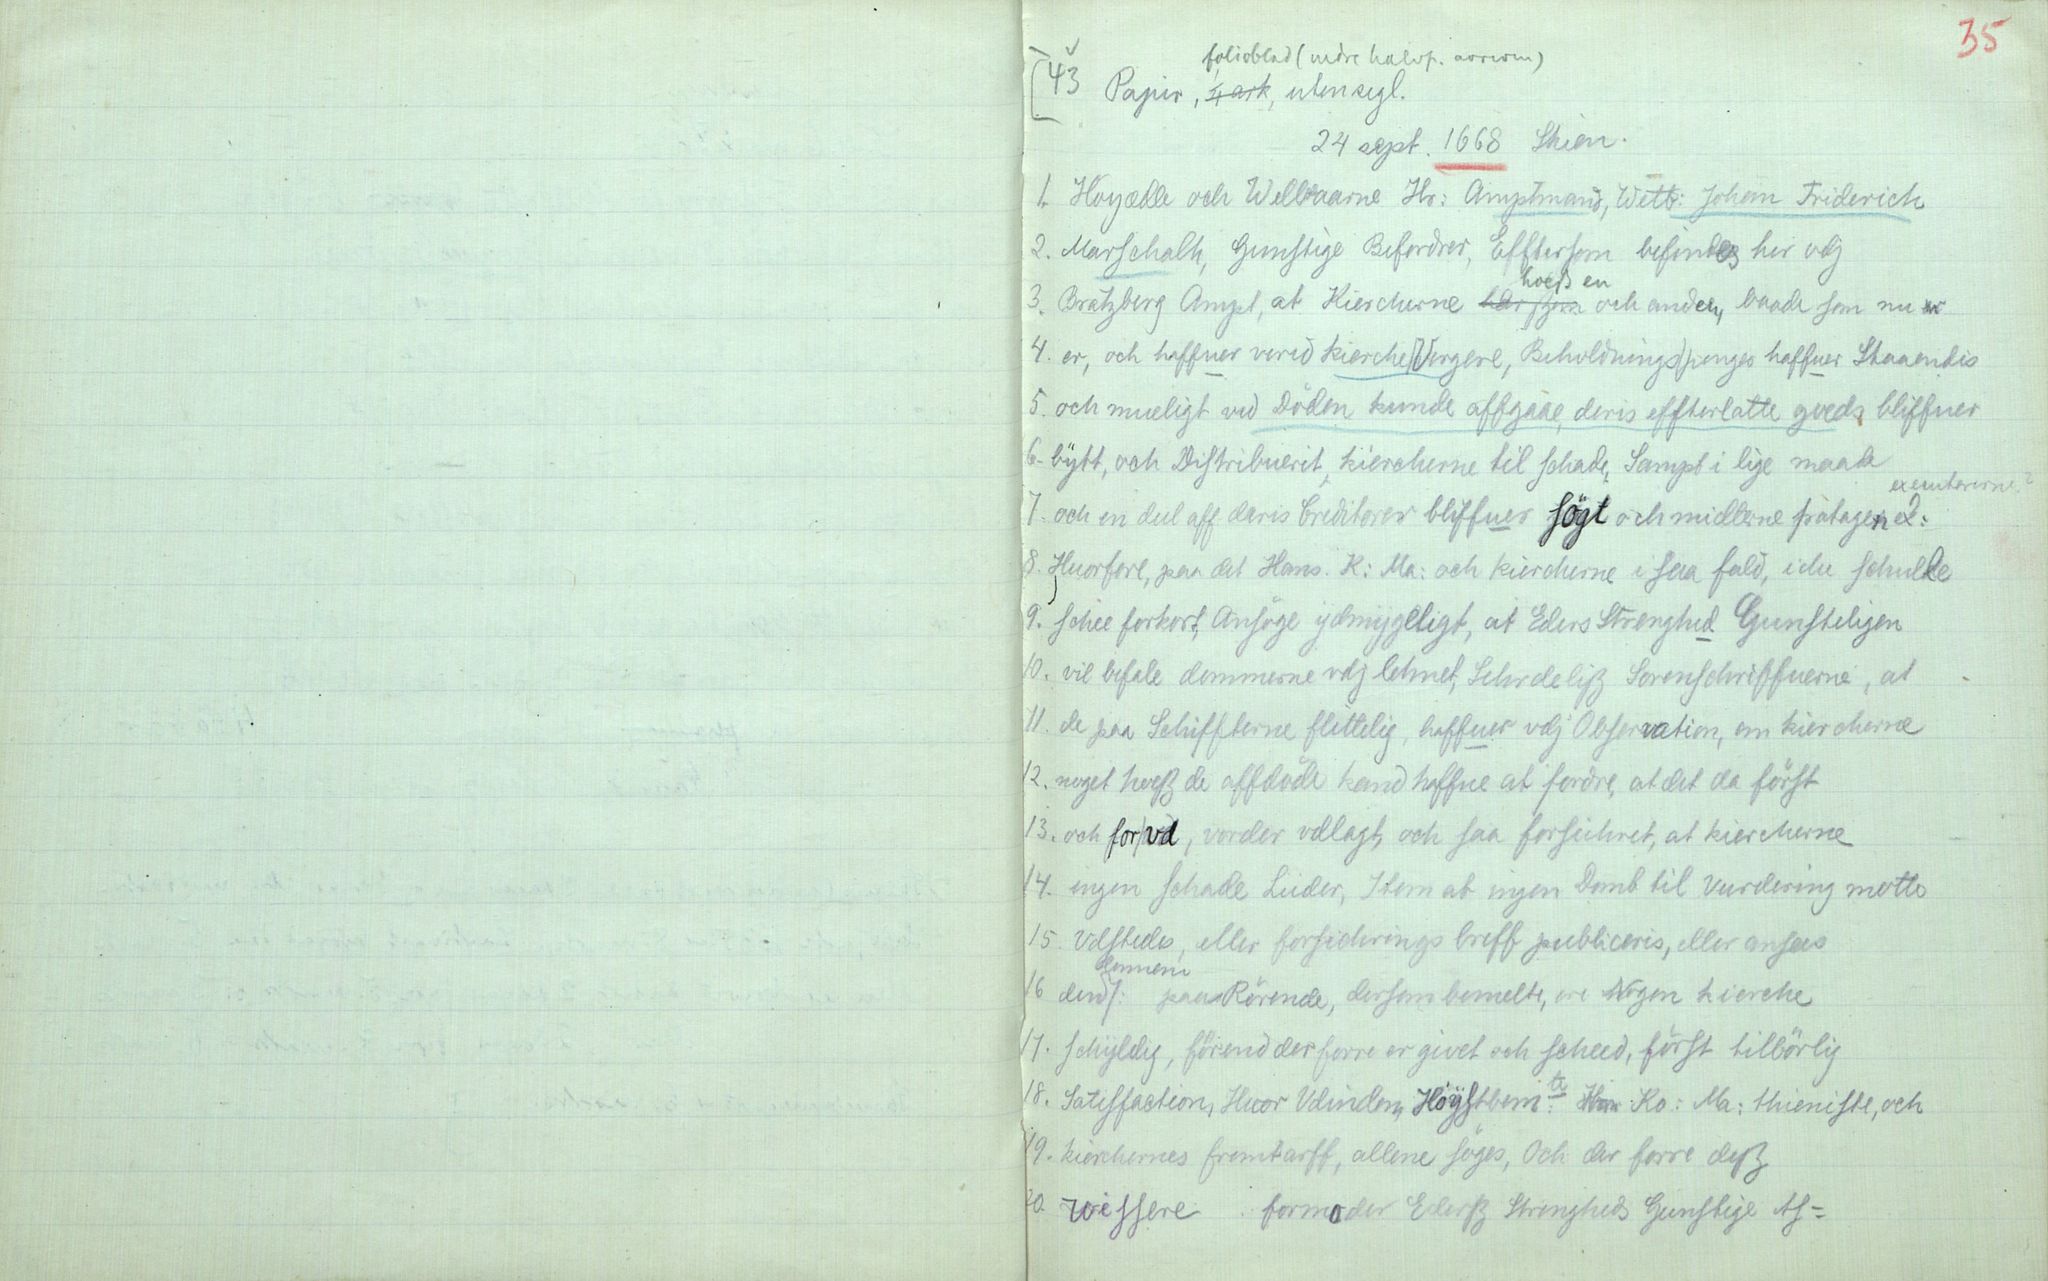 35
folioblad (nedre halvp. avrevn)
43 Papir, 1/4 ark, uten segl.
24 sept. 1668 Skien.
1. Høyædle och Welbaarne Hr: Amptmand, Welb: Johan Friderich
2. Marschalk, Gunstige Befordrer, Efftersom befindes her vdj
3. Bratzberg Ampt, at Kiercherne hoeß en och anden, baade som nu
4. er, och haffuer verid kierche Vergere, Beholdnings penges haffuer Staaendis
5. och mueligt ved Döden kunde affgaae, deris effterlatte goeds bliffuer
6. bÿtt, och Distribuerit, kiercherne til schade, Sampt i lige maade
7. och en deel aff deris Creditorer bliffuer sögt och midlerne fratagen
8. Huorfore, paa det Hans. K: Ma: och kiercherne i saa fald, icke schulle
9. schee forkort, Ansöge ydmygeligt, at Eders Strenghed Gunsteligen
10. vil befale dommerne vdj Lehnet, Sehrdeliß Sorenschriffuerne, at
11. de paa Schiffterne flittelig, haffuer vdj Observation, om kiercherne
12. noget hoeß de affdöde kand haffue at fordre, at det da först
13. och forvd, vorder vdlagt, och saa forsichret, at kiercherne
14. ingen schade Lieder, Item at ingen Domb til Vurdering motte
15. Vdstedes, eller forsichrings breff publiceris, eller ansees
16 dennem paa Rörende, dersom bemelte, ere Nogen kierche
17. schÿldig, förend der forre er givet och scheed, först tilbörlig
18. Satisfaction, Huor Vdinden, Höÿstbemte: Ko: Ma: thieniste, och
19. kierchernes fremtarff, allene söges, Och der forre deß
20. wissere formoder Ederß Strengheds Gunstige As=